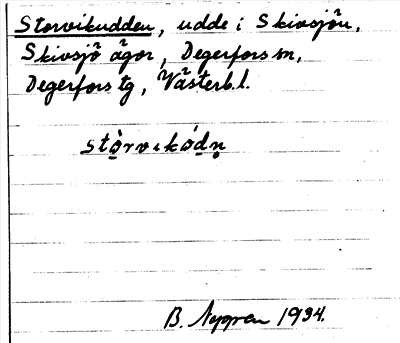 Storvikudden, udde i Skivsjön,
Skivsjö ägor, Degerfors sn,
Degerfors tg, Västerb.l.
stòrvikódn̥
B. Nygren 1934.